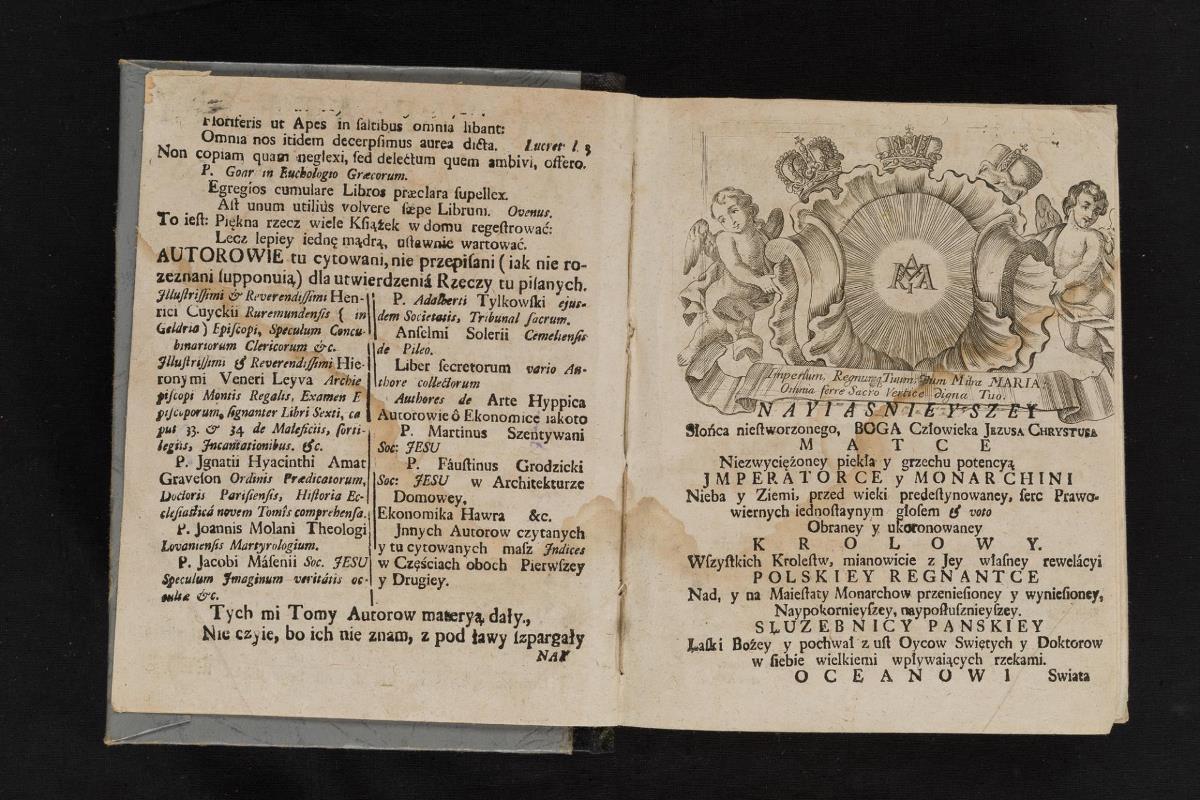 Floriferis ut Apes in ſaltibus omnia libant:
Omnia nos itidem decerpſimus aurea dicta. Lucret l. 3
Non copiam quam neglexi, ſed delectum quem ambivi, offero.
P. Goar in Euchologio Græcorum.
Egregios cumulare Libros præclara ſupellex.
Aſt unum utiliùs volvere ſæpe Librum. Ovenus.
To ieſt: Piękna rzecz wiele Kſiążek w domu regeſtrować:
Lecz lepiey iednę mądrą, uſtawnie wartować.
AUTOROWIE tu cytowani, nie przepiſani (iak nie ro-
zeznani ſupponuią) dla utwierdzeniá Rzeczy tu piſanych.
Jlluſtriſſimi & Reverendiſſimi Hen-
rici Cuyckii Ruremundenſis ( in
Geldria) Epiſcopi, Speculum Concu-
binariorum Clericorum &c.
Jlluſtriſſimi & Reverendiſſimi Hie-
ronymi Veneri Leyva Archie
piſcopi Montis Regalis, Examen E
piſcoporum, ſignanter Libri Sexti, ca
put 33. & 34 de Maleficiis, ſorti-
legiis, Incantationibus. &c.
P. Jgnatii Hyacinthi Amat
Graveſon Ordinis Prædicatorum,
Doctoris Pariſienſis, Hiſtoria Ec-
cleſiaſticá novem Tomis comprehenſa.
P. Joannis Molani Theologi
Lovanienſis Martyrologium.
P. Jacobi Máſenii Soc. JESU
Speculum Jmaginum veritátis oc-
cultæ &c.
P. Adalberti Tylkowſki ejus-
dem Societatis, Tribunal ſacrum.
Anſelmi Solerii Cemelienſis
de Pileo.
Liber ſecretorum vario Au-
thore collectorum
Authores de Arte Hyppica
Autorowie ô Ekonomice iakoto
P. Martinus Szentywani
Soc: JESU
P. Fáuſtinus Grodzicki
Soc: JESU w Architekturze
Domowey.
Ekonomika Hawra &c.
Jnnych Autorow czytanych
y tu cytowanych maſz Jndices
w Częściach oboch Pierwſzey
y Drugiey.
Tych mi Tomy Autorow materyą dały.,
Nie czyie, bo ich nie znam, z pod ławy ſzpargały
NAY
Imperium, Regnumq Tuum, cum Mitra MARIA:
Omnia ferre Sacro Vertice digna Tuo.
NAYIASNIEYSZEY
Słońca nieſtworzonego, BOGA Człowieka JEZUSA CHRYSTUSA
MATCE
Niezwyciężoney piekła y grzechu potencyą
JMPERATORCE y MONARCHINI
Nieba y Ziemi, przed wieki predeſtynowaney, ſerc Prawo-
wiernych iednoſtaynym głoſem & voto
Obraney y ukoronowaney
KROLOWY.
Wſzyſtkich Kroleſtw, mianowicie z Jey właſney rewelácyi
POLSKIEY REGNANTCE
Nad, y na Maieſtaty Monarchow przenieſioney y wynieſioney,
Naypokornieyſzey, naypoſłuſznieyſzey.
SŁUZEBNICY PANSKIEY
Łaſki Bożey y pochwał z uſt Oycow Swiętych y Doktorow
w ſiebie wielkiemi wpływaiących rzekami.
OCEANOWI Swiata